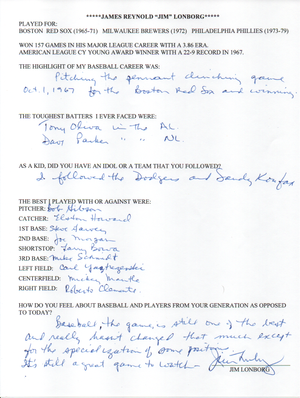 *****JAMES REYNOLD "JIM" LONBORG*****
PLAYED FOR:
BOSTON RED SOX (1965-71) MILWAUKEE BREWERS (1972) PHILADELPHIA PHILLIES (1973-79)
WON 157 GAMES IN HIS MAJOR LEAGUE CAREER WITH A 3.86 ERA.
AMERICAN LEAGUE CY YOUNG AWARD WINNER WITH A 22-9 RECORD IN 1967.
THE HIGHLIGHT OF MY BASEBALL CAREER WAS:
Pitching the pennant clinching game
Oct. 1, 1967 for the Boston Red Sox and winning.
THE TOUGHEST BATTERS I EVER FACED WERE:
Tony Oliva in the AL
Dave Parker " " NL
AS A KID, DID YOU HAVE AN IDOL OR A TEAM THAT YOU FOLLOWED?
I followed the Dodgers and Sandy Koufax
THE BEST I PLAYED WITH OR AGAINST WERE:
PITCHER: Bob Gibson
CATCHER: Elston Howard
1ST BASE: Steve Garvey
2ND BASE: Joe Morgan
SHORTSTOP: Larry Bowa
3RD BASE: Mike Schmidt
LEFT FIELD: Carl Yastrzemski
CENTERFIELD: Mickey Mantle
RIGHT FIELD: Roberto Clemente
HOW DO YOU FEEL ABOUT BASEBALL AND PLAYERS FROM YOUR GENERATION AS OPPOSED
TO TODAY?
Baseball, the game, is still one of the best
and really hasn't changed that much except
for the specialization of some positions
It's still a great game to watch
Jim Lonborg
JIM LONBORG